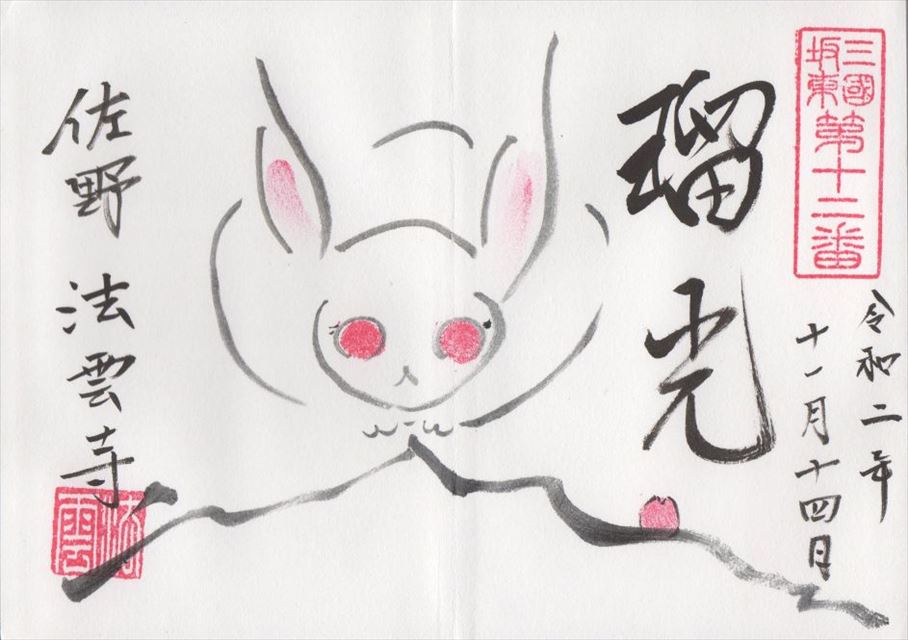 三國
坂東
第十二番
令和二年
十一月十四日
瑠光
佐野 法雲寺
法雲